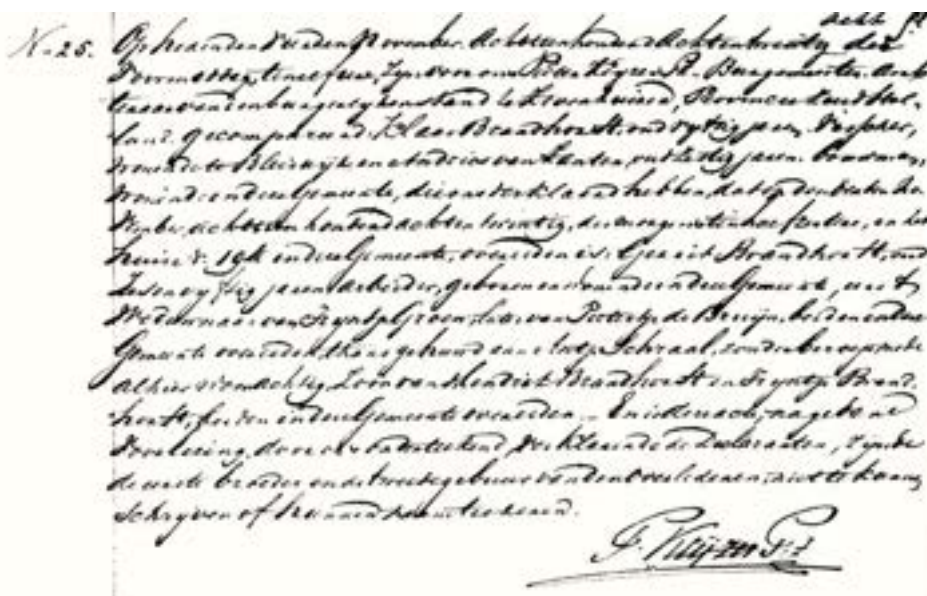 acht
No 25. Op heden den den November Achttienhonderd Achtentwintig des
voormiddags ten ure, zijn voor ons Pieter Keijzer Pz. Burgemeester Amb-
tenaar van den burgerlijken stand te Zevenhuizen, Provincie Zuid Hol-
land. gecompareerd, Klaas Brandhorst, oud vyftig jaren,
wonende te Bleiswijk en Andries van Santen, oud zestig jaren, bouwman,
wonende in deze Gemeente, die ons verklaard hebben, dat op den No-
vember, achttien honderd acht en twintig, des morgens ten half, in het
huis No. 194 in deze Gemeente, overleden is: Gerrit Brandhorst, oud
jaren arbeider, geboren en wonende in deze Gemeente, eerst
Weduwnaar van Tryntje Groen, later van Pietertje de Bruijn, beiden in deze
Gemeente overleden, thans gehuwd aan Schraal, zonder beroep mede
alhier woonachtig, Zoon van Hendrik Brandhorst en Tryntje Brand-
horst, beiden in deze Gemeente overleden. En is deze acte, na gedane
voorlezing, door ons onderteekend, verklaarende de Declaranten, zijnde
de eerste broeder en de tweede gebuur van den overledenen, niet te kunnen
schryven of hunnen naam teekenen.
P. Keijzer Pz